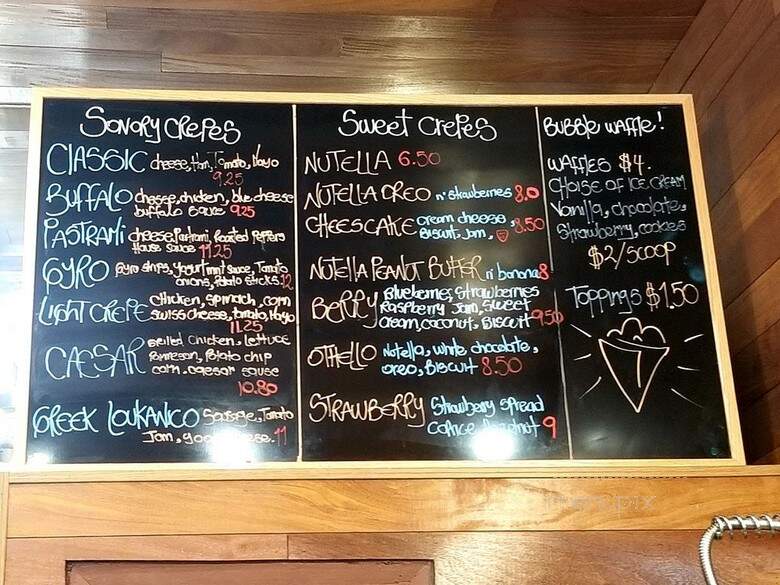 Savory Crepes
CLASSIC cheese, Ham, Tomato, Mayo
9.25
BUFFALO cheese, chicken, blue cheese
buffalo sauce 9.25
PASTRAMI cheese, Pastrami, Roasted Peppers
House sauce 11.25
GYRO Gyro strips, yogurt mint sauce, Tomato
onions, Potato sticks 12
LIGHT CREPE chicken, spinach, corn
swiss cheese, tomato, Mayo
11.25
CAESAR Grilled chicken, Lettuce
Parmesan, Potato chip
corn, caesar sause
10.80
GREEK LOUKANICO Sausage, Tomato
Jam, cheese. 11
Sweet Crepes
NUTELLA 6.50
NUTELLA OREO n' strawberries 8.0
CHEESCAKE cream cheese
Biscuit, Jam, 8.50
NUTELLA PEANUT BUTTER n' banana 8
BERRY Blueberries, Strawberries
Raspberry Jam, Sweet
cream, coconut, Biscuit 9.50
OTHELLO Nutella, white chocolate,
oreo, Biscuit 8.50
STRAWBERRY Strawberry spread
9
BUBBLE WAFFLE!
WAFFLES $4.
CHOISE OF ICE CREAM
Vanilla, chocolate,
Strawberry, cookies
$2/SCOOP
TOPPINGS $1.50